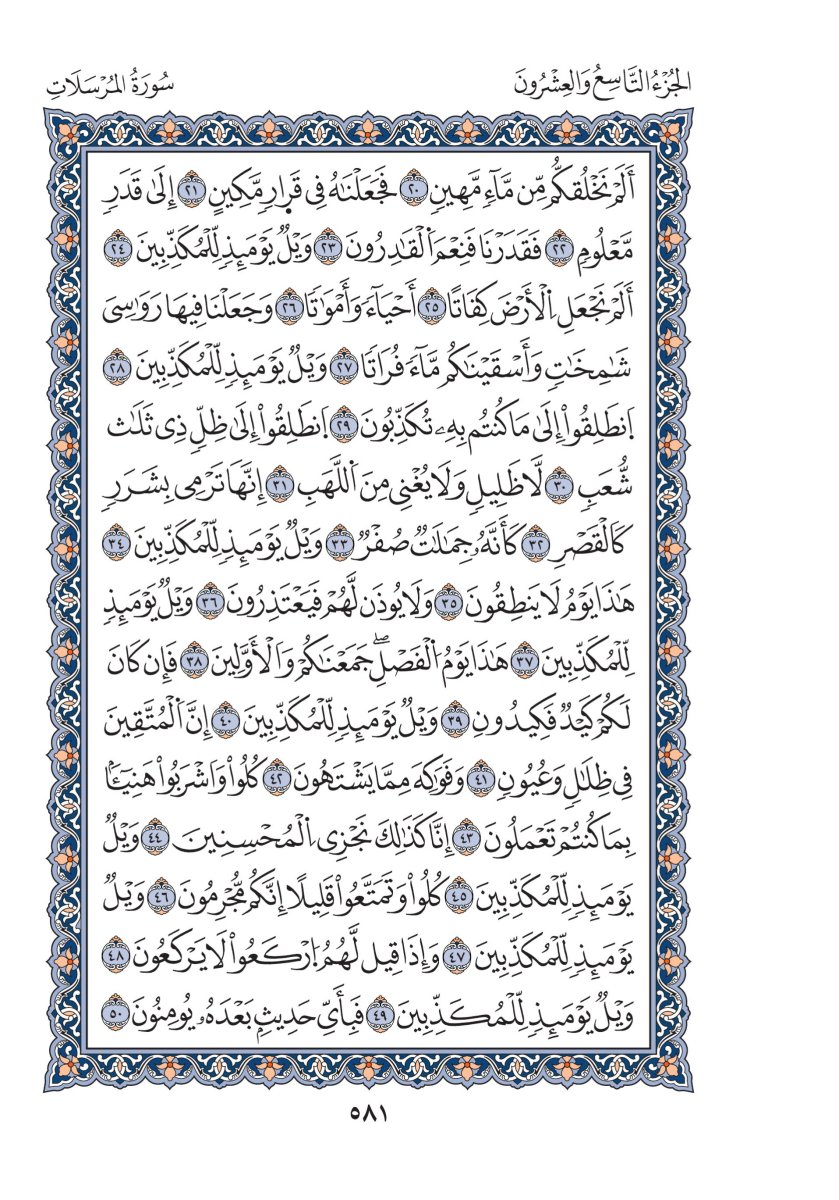 الجُزْءُ التَّاسِعُ وَالعِشْرُونَ
سُورَةُ المُرْسَلَاتِ
أَلَمْ نَخْلُقكُّم مِّن مَّآءٖ مَّهِينٖ ٢٠ فَجَعَلْنَٰهُ فِي قَرَارٖ مَّكِينٍ ٢١ إِلَىٰ قَدَرٖ
مَّعْلُومٖ ٢٢ فَقَدَرْنَا فَنِعْمَ اَ۬لْقَٰدِرُونَ ٢٣ وَيْلٞ يَوْمَئِذٖ لِّلْمُكَذِّبِينَ ٢٤
أَلَمْ نَجْعَلِ اِ۬لْأَرْضَ كِفَاتًا ٢٥ أَحْيَآءٗ وَأَمْوَٰتٗا ٢٦ وَجَعَلْنَا فِيهَا رَوَٰسِيَ
شَٰمِخَٰتٖ وَأَسْقَيْنَٰكُم مَّآءٗ فُرَاتٗا ٢٧ وَيْلٞ يَوْمَئِذٖ لِّلْمُكَذِّبِينَ ٢٨
اِ۪نطَلِقُواْ إِلَىٰ مَا كُنتُم بِهِۦ تُكَذِّبُونَ ٢٩ اَ۪نطَلِقُواْ إِلَىٰ ظِلّٖ ذِي ثَلَٰثِ
شُعَبٖ ٣٠ لَّا ظَلِيلٖ وَلَا يُغْنِي مِنَ اَ۬للَّهَبِ ٣١ إِنَّهَا تَرْمِي بِشَرَرٖ
كَالْقَصْرِ ٣٢ كَأَنَّهُۥ جِمَٰلَٰتٞ صُفْرٞ ٣٣ وَيْلٞ يَوْمَئِذٖ لِّلْمُكَذِّبِينَ ٣٤
هَٰذَا يَوْمُ لَا يَنطِقُونَ ٣٥ وَلَا يُوذَن لَّهُمْ فَيَعْتَذِرُونَ ٣٦ وَيْلٞ يَوْمَئِذٖ
لِّلْمُكَذِّبِينَ ٣٧ هَٰذَا يَوْمُ اُ۬لْفَصْلِۖ جَمَعْنَٰكُمْ وَالْأَوَّلِينَ ٣٨ فَإِن كَانَ
لَكُمْ كَيْدٞ فَكِيدُونِ ٣٩ وَيْلٞ يَوْمَئِذٖ لِّلْمُكَذِّبِينَ ٤٠ إِنَّ اَ۬لْمُتَّقِينَ
فِي ظِلَٰلٖ وَعُيُونٖ ٤١ وَفَوَٰكِه مِّمَّا يَشْتَهُونَ ٤٢ كُلُواْ وَاشْرَبُواْ هَنِيٓـَٔۢا
بِمَا كُنتُمْ تَعْمَلُونَ ٤٣ إِنَّا كَذَٰلِكَ نَجْزِي اِ۬لْمُحْسِنِينَ ٤٤ وَيْلٞ
يَوْمَئِذٖ لِّلْمُكَذِّبِينَ ٤٥ كُلُواْ وَتَمَتَّعُواْ قَلِيلًا إِنَّكُم مُّجْرِمُونَ ٤٦ وَيْلٞ
يَوْمَئِذٖ لِّلْمُكَذِّبِينَ ٤٧ وَإِذَا قِيل لَّهُمُ اُ۪رْكَعُواْ لَا يَرْكَعُونَ ٤٨
وَيْلٞ يَوْمَئِذٖ لِّلْمُكَذِّبِينَ ٤٩ فَبِأَيِّ حَدِيثِۢ بَعْدَهُۥ يُومِنُونَ ٥٠
٥٨١